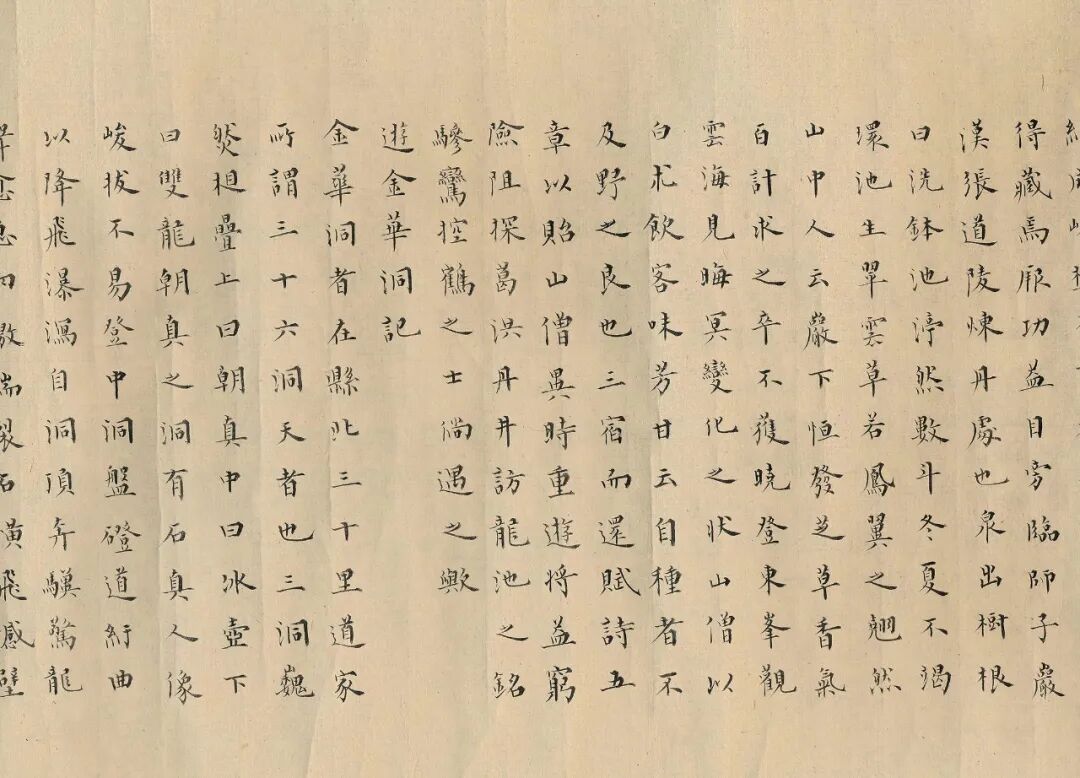 得藏焉服功益目旁臨師子巖
漢張道陵煉丹處也泉出樹根
曰洗鉢池渟然數斗冬夏不竭
環池生翠雲草若鳳翼之翹然
山中人云巖下恒發芝草香氣
百計求之卒不獲曉登東峯觀
雲海見晦冥變化之狀山僧以
白朮飲客味芳甘云自種者不
及野之良也三宿而還賦詩五
章以貽山僧異時重遊將益窮
險阻探葛洪丹井訪龍池之銘
驂鸞控鶴之士倘遇之歟
遊金華洞記
金華洞者在縣北三十里道家
所謂三十六洞天者也三洞巍
然相疊上曰朝真中曰冰壺下
曰雙龍朝真之洞有石真人像
峻拔不易登中洞盤磴道紆曲
以降飛瀑瀉自洞頂奔驥驚龍